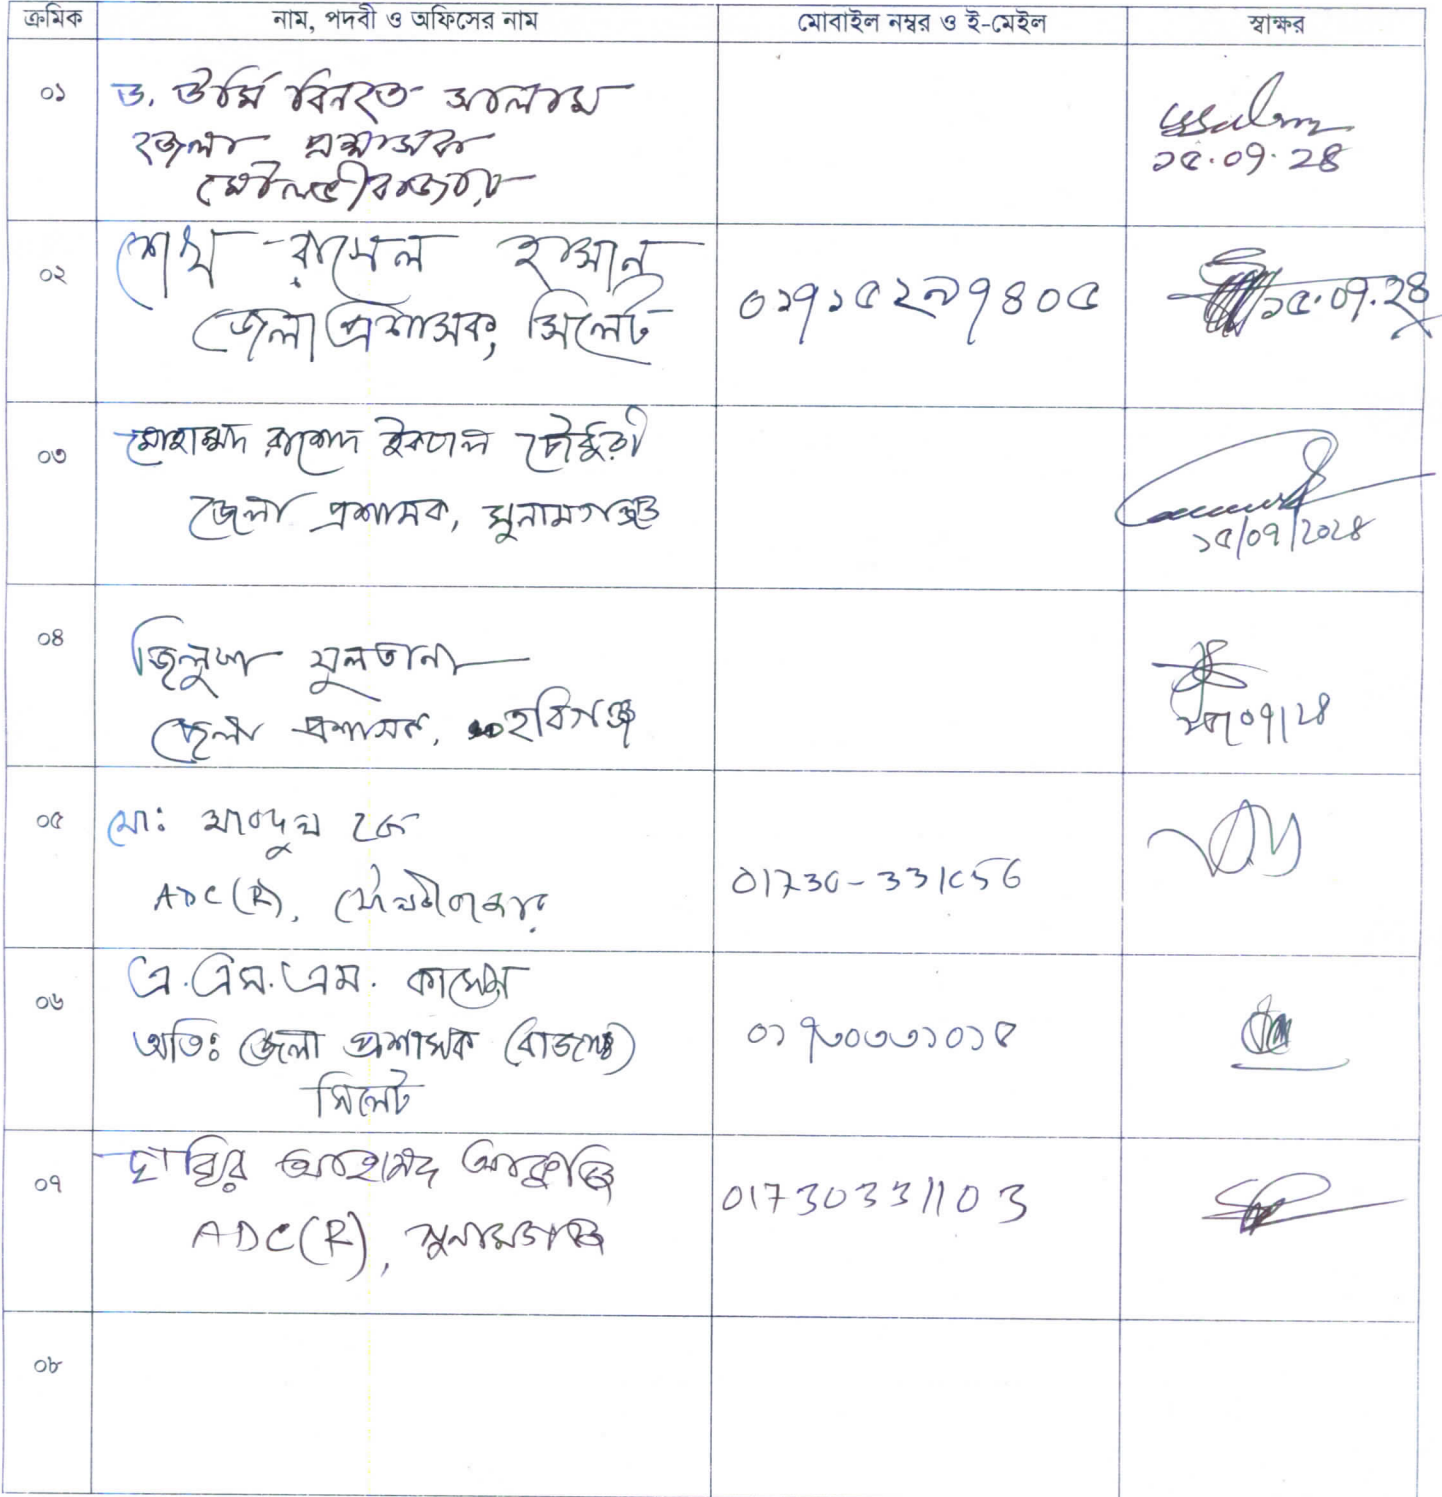 ক্রমিক নাম, পদবী ও অফিসের নাম মোবাইল নম্বর ও ই-মেইল স্বাক্ষর
০১ ড. উর্মি বিনতে সালাম
জেলা প্রশাসক
মৌলভীবাজার
১৫.০৭.২৪
০২ শেখ রাসেল হাসান
জেলা প্রশাসক, সিলেট
০১৭১৫২৯৭৪০৫ ১৫.০৭.২৪
০৩ মোহাম্মদ রাশেদ ইকবাল চৌধুরী
জেলা প্রশাসক, সুনামগঞ্জ
১৫/০৭/২০২৪
০৪ জিলুফা সুলতানা
জেলা প্রশাসক, হবিগঞ্জ
১৫/০৭/২৪
০৫ মো:
ADC (R), মৌলভীবাজার
০৬ এ.এস.এম. কাসেম
অতিঃ জেলা প্রশাসক (রাজস্ব)
সিলেট
০১৭৩০৩৩১০১৫
০৭ আহমেদ
ADC (R), সুনামগঞ্জ
01730331103
০৮